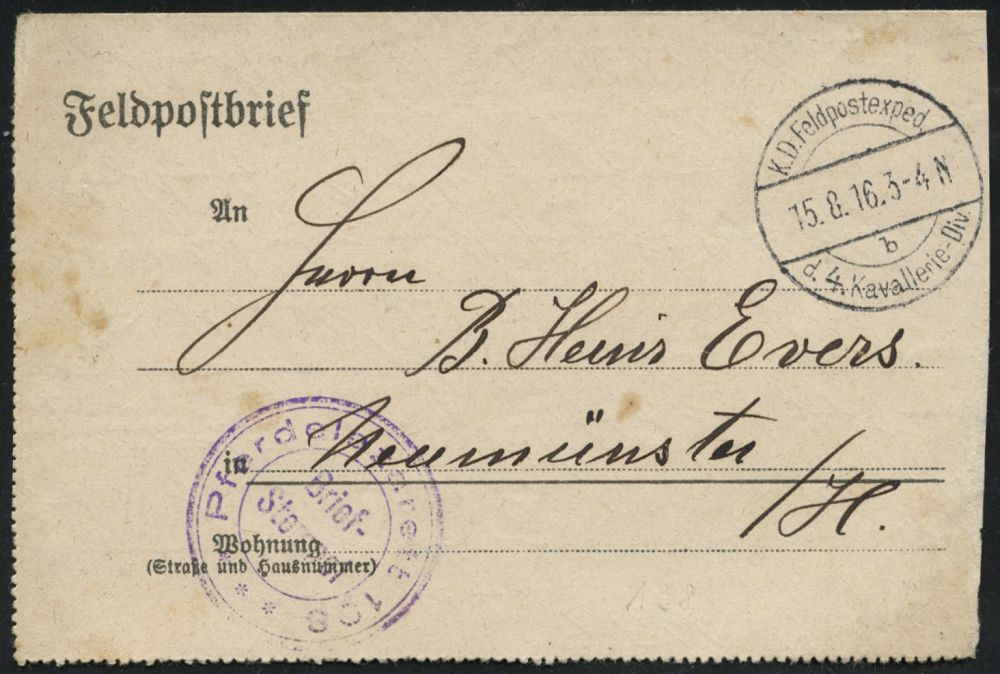 Feldpostbrief
K.D. Feldpostexped.
15.8.16.3-4 N
b
d. 4. Kavallerie-Div.
An
Herrn
B. Heinr Evers.
in Neumünster
/H.
Pferdelazarett 108
Brief-
Stempel
Wohnung
(Straße und Hausnummer)